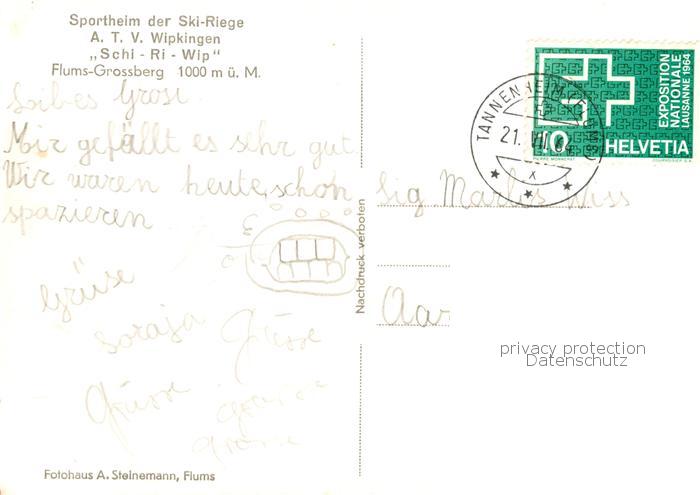 Sportheim der Ski-Riege
A. T. V. Wipkingen
„Schi - Ri - Wip"
Flums-Grossberg 1000 m ü. M.
Liebes Grosi
Mir gefällt es sehr gut
Wir waren heute schon
spazieren
Grüse
Soraja
Grüsse
Grüsse
Grüsse
Fotohaus A. Steinemann, Flums
Nachdruck verboten
EXPOSITION
NATIONALE
LAUSANNE 1964
10 HELVETIA
PIERRE MONNERAT
COURVOISIER S.A.
TANNENHEIM (FLUMS)
21. VII. 64
X
Sig. Marlis Wiss
Aar
privacy protection
Datenschutz